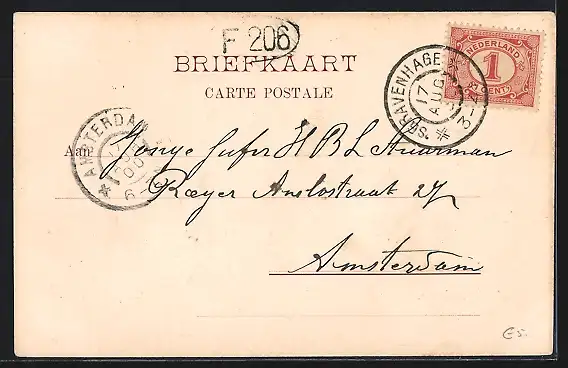 F 206
BRIEFKAART
CARTE POSTALE
NEDERLAND
1
CENT
'S GRAVENHAGE
17 AUG
3-4
AMSTERDAM
Aan Jonge Jufer H B L Stuurman
Roeyer Anslostraat 27
Amsterdam
€5.